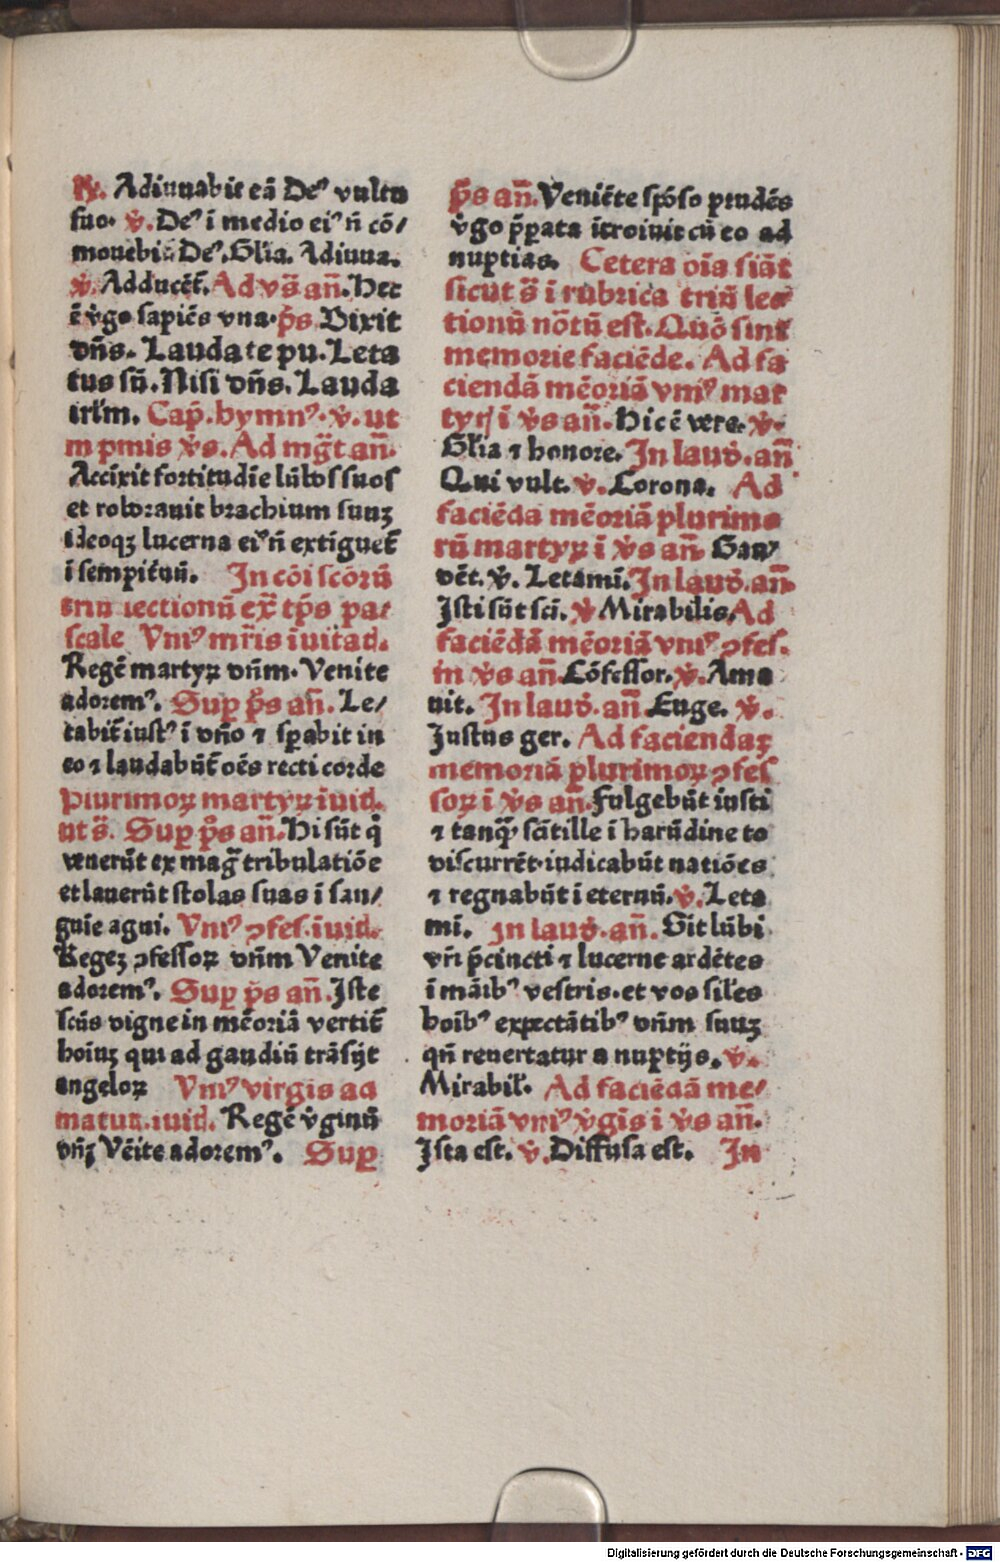 ℟. Adiuuabit eā Deꝰ vultu
suo. ℣. Deꝰ ī medio eiꝰ n̄ cō/
mouebiť Deꝰ. Gl̄ia. Adiuua.
℣. Adducēť. Ad vs̄ an̄. Hec
ē v̇go sapiēs vna. p̄s. Dixit
dn̄s. Laudate pu. Leta
tus sū. Nisi dn̄s. Lauda
irl̄m. Cap̄. hymnꝰ. ℣. ut
in pmis v̇s. Ad mg̃t an̄.
Accīxit fortitudīe lūbos suos
et roborauit brachium suuꝫ
ideoqꝫ lucerna eiꝰ n̄ extīguet̄
ī sempit̄nū. In cōi scōrū
triū lectionū ex̄ tp̄s pa/
scale Vniꝰ mr̄is īuitad.
Regē martyꝝ dn̄m. Venite
adoremꝰ. Suꝑ p̄s an̄. Le/
tabit̄ iustꝰ ī dn̄o ⁊ sꝑabit in
eo ⁊ laudabūt̄ oēs recti corde
Plurimoꝝ martyꝝ īuid.
ut s̄. Suꝑ p̄s an̄. Hi sūt q̇
venerūt ex mag̃ tribulatiōe
et lauerūt stolas suas ī san/
guīe agni. Vniꝰ ꝯfes. īuid.
Regeꝫ ꝯfessoꝝ dn̄m Venite
adoremꝰ. Suꝑ p̄s an̄. Iste
scūs digne in mēoriā vertit̄
hoīuꝫ qui ad gaudiū trāsijt
angeloꝝ Vniꝰ virgis ad
matut. īuid. Regē v̇ginū
dn̄ꝫ Vēite adoremꝰ. Suꝑ
p̄s an̄. Veniēte spōso prudēs
v̇go p̄ꝑata ītroiuit cū eo ad
nuptias. Cetera oīa fiāt
sicut s̄ ī rubrica triū lec
tionū nōtū est. Quō sint
memorie faciēde. Ad fa
ciendā mēoriā vniꝰ mar
tyrꝭ ī v̇s an̄. Hic ē vere. ℣.
Gl̄ia ⁊ honore. In laud̓. an̄
Qui vult. ℣. Corona. Ad
faciēda mēoriā plurimo
rū martyꝝ ī v̇s an̄. Gau/
dēt. ℣. Letami. In laud̓. an̄.
Isti sūt scī. ℣. Mirabilis. Ad
faciēdā mēoriā vniꝰ ꝯfes.
in v̇s an̄. Cōfessor. ℣. Ama
uit. In laud̓. an̄. Euge. ℣.
Iustus ger. Ad faciendaꝫ
memoriā plurimoꝝ ꝯfes
soꝝ ī v̇s an̄. Fulgebūt iusti
⁊ tanqꝫ̄ scītille ī harūdine to
discurrēt. iudicabūt natiōes
⁊ regnabūt ī eternū. ℣. Leta
mi. In laud̓. an̄. Sit lūbi
vr̄i p̄cincti ⁊ lucerne ardētes
ī māibꝰ vestris. et vos sil̄es
hoībꝰ expectātibꝰ dn̄m suuꝫ
qn̄ reuertatur a nuptijs. ℣.
Mirabil̄. Ad faciēdā me/
moriā vniꝰ v̇gīs ī v̇s an̄.
Ista est. ℣. Diffusa est. In
Digitalisierung gefördert durch die Deutsche Forschungsgemeinschaft - DFG